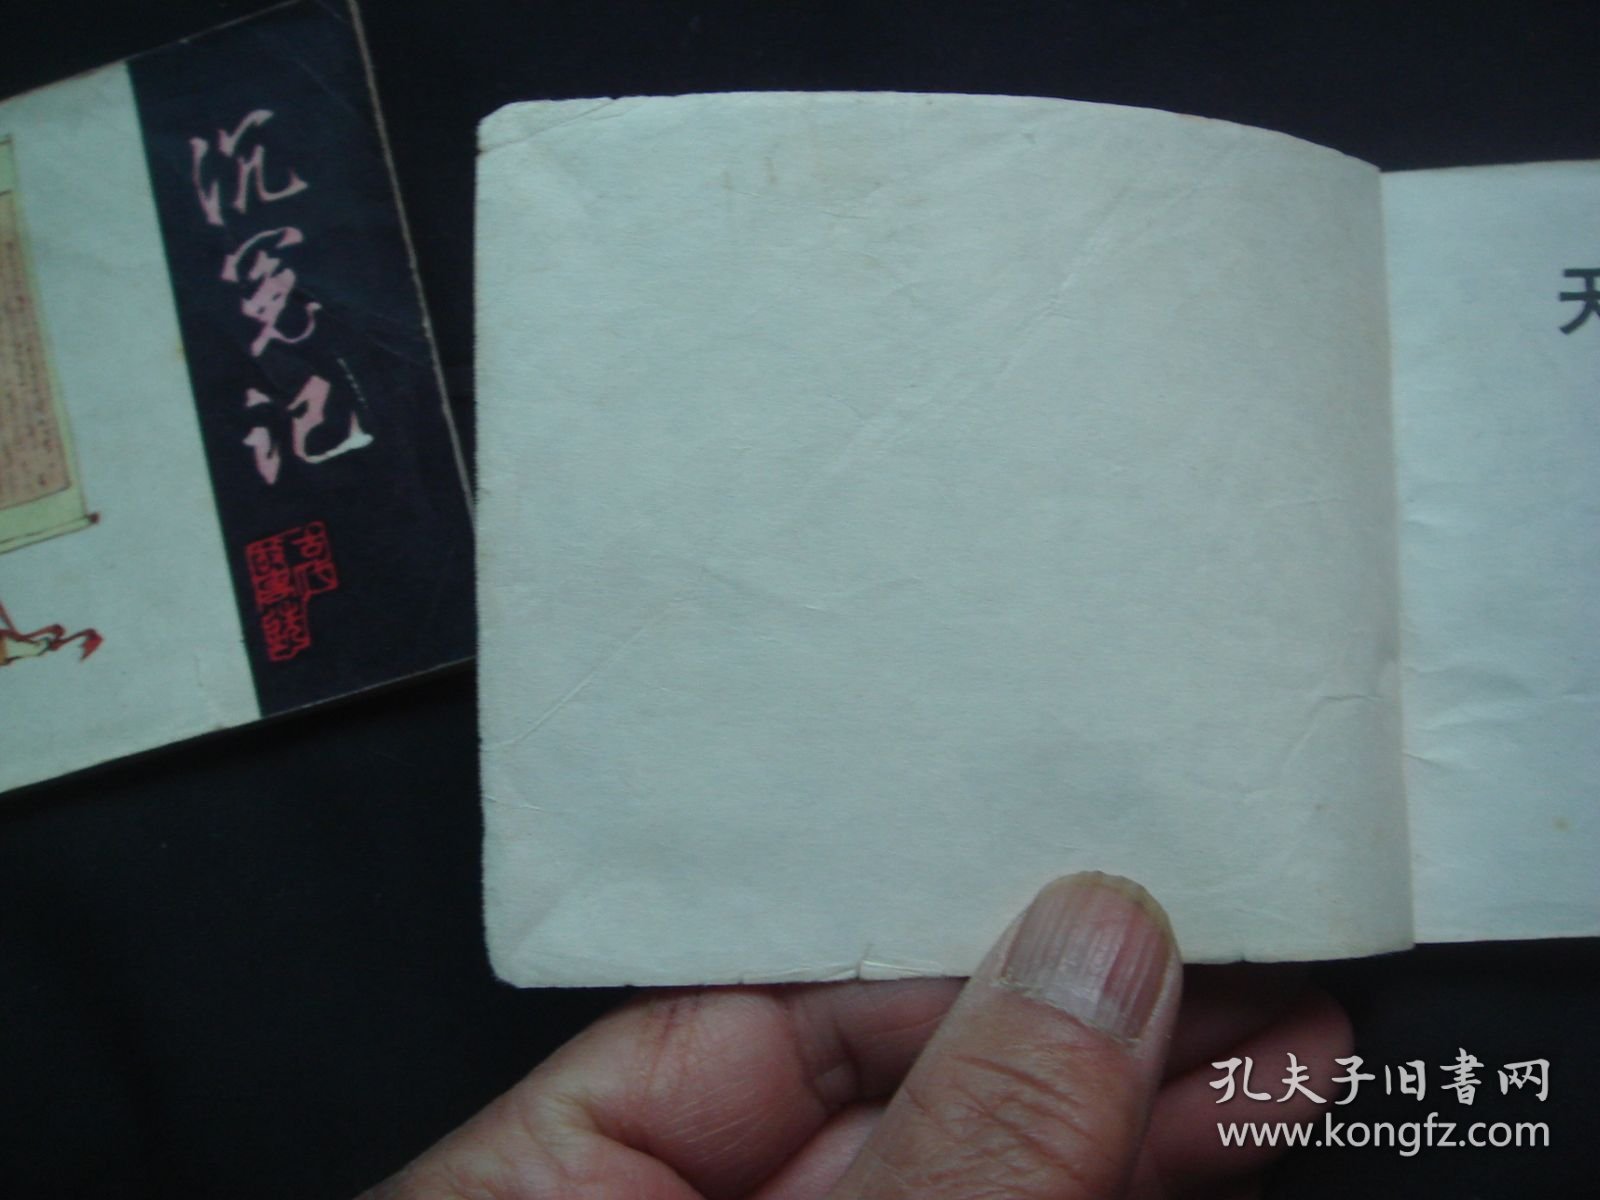 沉冤记
天
孔夫子旧书网
www.kongfz.com